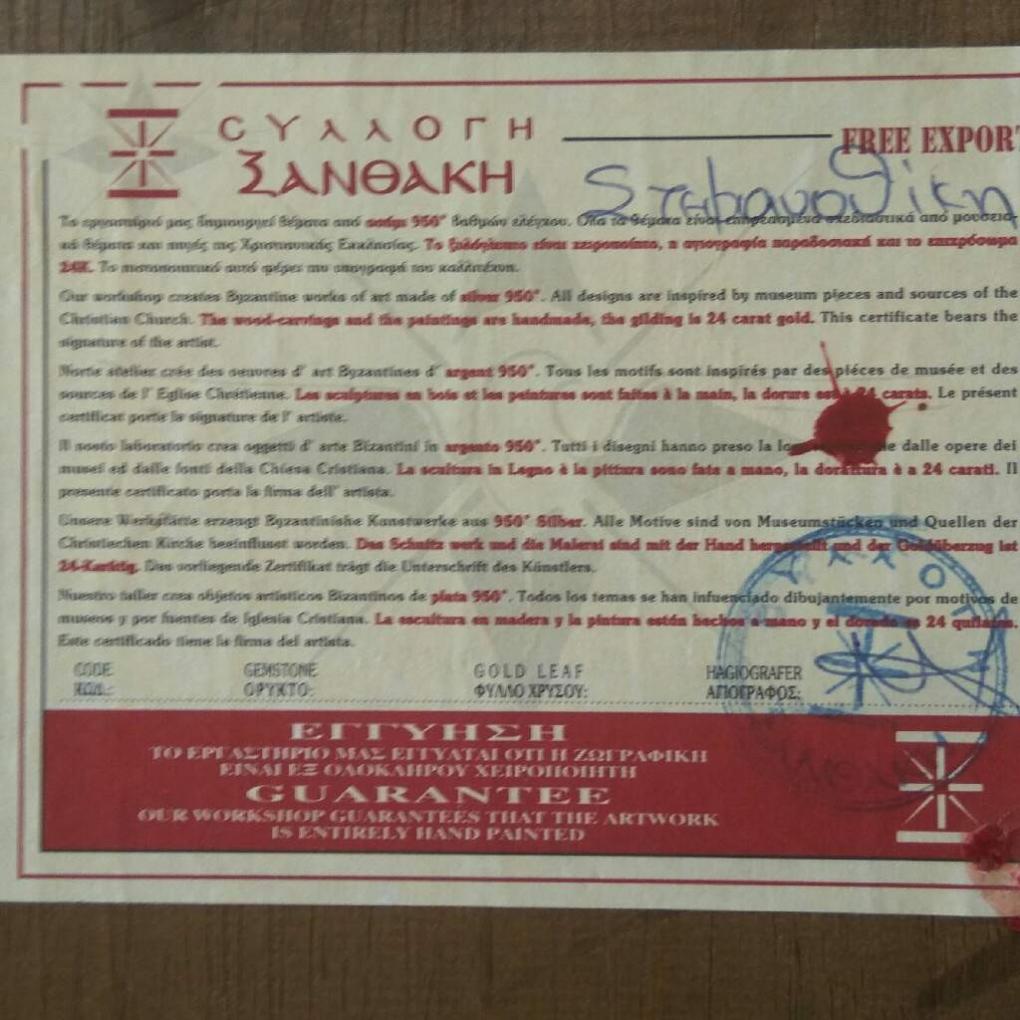 ΣΥΛΛΟΓΗ
ΞΑΝΘΑΚΗ
FREE EXPORT
Το εργαστήριό μας δημιουργεί θέματα από ασήμι 950° βαθμών ελέγχου. Όλα τα θέματα είναι επηρεασμένα σχεδιαστικά από μουσεια-
κά θέματα και πηγές της Χριστιανικής Εκκλησίας. Το ξυλόγλυπτο είναι χειροποίητο, η αγιογραφία παραδοσιακή και το επιχρύσωμα
24Κ. Το πιστοποιητικό αυτό φέρει την υπογραφή του καλλιτέχνη.
Our workshop creates Byzantine works of art made of silver 950°. All designs are inspired by museum pieces and sources of the
Christian Church. The wood-carvings and the paintings are handmade, the gilding is 24 carat gold. This certificate bears the
signature of the artist.
Norte atelier crée des oeuvres d' art Byzantines d' argent 950°. Tous les motifs sont inspirés par des piéces de musée et des
sources de l' Eglise Chrétienne. Les sculptures en bois et les peintures sont faites à la main, la dorure est à 24 carats. Le présent
certificat porte la signature de l' artiste.
Il nosto laboratorio crea oggetti d' arte Bizantini in argento 950°. Tutti i disegni hanno preso la dalle opere dei
musei ed dalle fonti della Chiesa Cristiana. La scultura in Legno è la pittura sono fate a mano, la doratura è a 24 carati. Il
presente certificato porta la firma dell' artista.
Unsere Werkstätte erzeugt Byzantinishe Kunstwerke aus 950° Silber. Alle Motive sind von Museumstücken und Quellen der
Christlechen Kirche beeinflusst worden. Das Schnitz werk und die Malerei sind mit der Hand hergestellt und der Goldüberzug ist
24-Karätig. Das vorliegende Zertifikat trägt die Unterschrift des Künstlers.
Nuestro taller crea objetos artísticos Bizantinos de plata 950°. Todos los temas se han infuenciado dibujantemente por motivos de
museos y por fuentes de Iglesia Cristiana. La escultura en madera y la pintura están hechos a mano y el dorado es 24 quilates.
Este certificado tiene la firma del artista.
CODE GEMSTONE GOLD LEAF HAGIOGRAFER
ΚΩΔ.: ΟΡΥΚΤΟ: ΦΥΛΛΟ ΧΡΥΣΟΥ: ΑΓΙΟΓΡΑΦΟΣ:
ΕΓΓΥΗΣΗ
ΤΟ ΕΡΓΑΣΤΗΡΙΟ ΜΑΣ ΕΓΓΥΑΤΑΙ ΟΤΙ Η ΖΩΓΡΑΦΙΚΗ
ΕΙΝΑΙ ΕΞ ΟΛΟΚΛΗΡΟΥ ΧΕΙΡΟΠΟΙΗΤΗ
GUARANTEE
OUR WORKSHOP GUARANTEES THAT THE ARTWORK
IS ENTIRELY HAND PAINTED